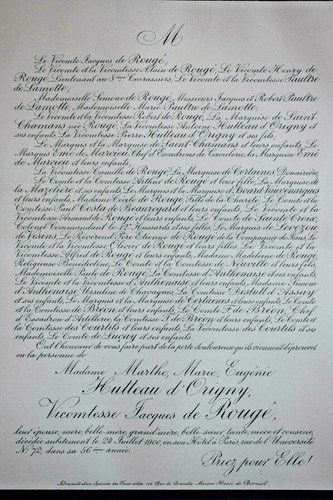 M
Le Vicomte Jacques de Rougé,
Le Vicomte et la Vicomtesse Alain de Rougé, Le Vicomte Henry de
Rougé, Lieutenant au Cuirassiers, Le Vicomte et la Vicomtesse Paultre
de Lamotte,
Mademoiselle Simone de Rougé, Messieurs Jacques et Robert Paultre
de Lamotte, Mademoiselle Marie Paultre de Lamotte,
Le Vicomte et la Vicomtesse Robert de Rougé, La Marquise de Saint
Chamans née Rougé, Le Vicomte et la Vicomtesse Antoine Hutteau d'Origny et
ses enfants, La Vicomtesse Pierre Hutteau d'Origny et ses fils,
Le Marquis et la Marquise de Saint Chamans et leurs enfants, Le
Marquis Emé de Marcieu, Chef d'Escadrons de Cavalerie, la Marquise Emé
de Marcieu et leurs enfants,
La Vicomtesse Camille de Rougé, La Marquise de Certaines Douairière,
Le Comte et la Comtesse Arthur de Rougé et leur fille, La Marquise de
la Mazelière et ses enfants, Le Marquis et la Marquise de
et leurs enfants, Mademoiselle Cécile de Rougé, Fille de la Charité, Le Comte et la
Comtesse Paul Costa de Beauregard et leurs enfants, Le Vicomte et la
Vicomtesse Armand de Rougé et leurs enfants, Le Comte de Sainte Croix,
Colonel Commandant le Hussards et ses filles, La Marquise de Levezou
de Vesins, Le Révérend Père Etienne de Rougé de la Compagnie de Jésus, Le
Vicomte et la Vicomtesse Olivier de Rougé et leurs filles, Le Vicomte et la
Vicomtesse Alfred de Rougé et leurs enfants, Madame Madeleine de Rougé,
Religieuse Bénédictine, Le Comte et la Comtesse de et leurs fils,
Mademoiselle Paule de Rougé, La Comtesse d'Anthenaise et ses enfants,
Le Vicomte et la Vicomtesse d'Anthenaise et leurs enfants, Madame
d'Anthenaise, Ursuline de La Comtesse d'Assay
et ses enfants, Le Marquis et la Marquise de Certaines et leurs enfants, Le Comte
et la Comtesse de Bréon et leurs enfants, Le Comte F. de Bréon, Chef
d'Escadron d'Artillerie, la Comtesse F. de Bréon et leurs enfants, Le Comte et
la Comtesse des Courtils et leurs enfants, La Vicomtesse des Courtils et ses
enfants, Le Comte de Luçay et ses enfants,
Ont l'honneur de vous faire part de la perte douloureuse qu'ils viennent d'éprouver
en la personne de
Madame Marthe, Marie, Eugénie
Hutteau d'Origny,
Vicomtesse Jacques de Rougé,
leur épouse, mère, belle-mère, grand'mère, belle-sœur, tante, nièce et cousine,
décédée subitement le 24 Juillet 1900, en son Hôtel à Paris, rue de l'Université
N° 72, dans sa 56ème année.
Priez pour Elle!
Administration Spéciale des Funérailles, Maison Henri de Borniol